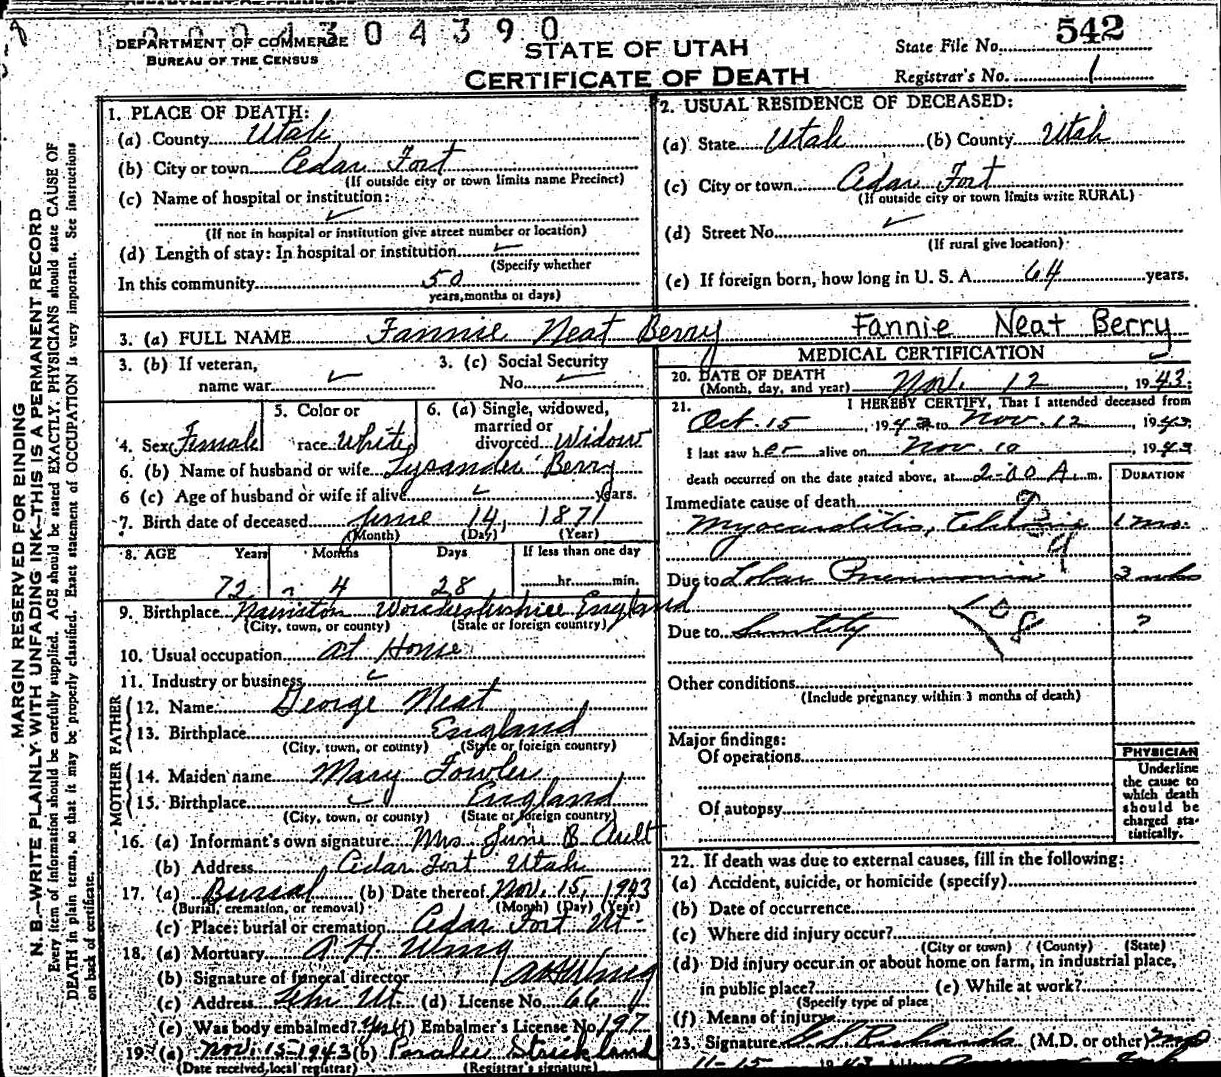 2 0 0 4 3 0 4 3 9 0
DEPARTMENT OF COMMERCE
BUREAU OF THE CENSUS
STATE OF UTAH
CERTIFICATE OF DEATH
State File No. 542
Registrar's No. 1
MARGIN RESERVED FOR BINDING
N. B.—WRITE PLAINLY WITH UNFADING INK—THIS IS A PERMANENT RECORD
Every item of information should be carefully supplied. AGE should be stated EXACTLY. PHYSICIANS should state CAUSE OF
DEATH in plain terms, so that it may be properly classified. Exact statement of OCCUPATION is very important. See instructions
on back of certificate.
1. PLACE OF DEATH:
(a) County Utah
(b) City or town Cedar Fort
(If outside city or town limits name Precinct)
(c) Name of hospital or institution:
✓
(If not in hospital or institution give street number or location)
(d) Length of stay: In hospital or institution ✓
(Specify whether
In this community 50
years, months or days)
2. USUAL RESIDENCE OF DECEASED:
(a) State Utah (b) County Utah
(c) City or town Cedar Fort
(If outside city or town limits write RURAL)
(d) Street No. ✓
(If rural give location)
(e) If foreign born, how long in U. S. A. 64 years.
3. (a) FULL NAME Fannie Neat Berry Fannie Neat Berry
3. (b) If veteran, name war ✓
3. (c) Social Security No. ✓
4. Sex Female
5. Color or race White
6. (a) Single, widowed, married or divorced Widow
6. (b) Name of husband or wife Lysander Berry
6 (c) Age of husband or wife if alive ✓ years.
7. Birth date of deceased June 14, 1871
(Month) (Day) (Year)
8. AGE Years Months Days If less than one day
72 4 28 hr. min.
9. Birthplace Worchestershire England
(City, town, or county) (State or foreign country)
10. Usual occupation at Home
11. Industry or business ✓
FATHER
12. Name George Neat
13. Birthplace England
(City, town, or county) (State or foreign country)
MOTHER
14. Maiden name Mary Fowler
15. Birthplace ✓ England
(City, town, or county) (State or foreign country)
16. (a) Informant's own signature Mrs June B Ault
(b) Address Cedar Fort Utah
17. (a) Burial (b) Date thereof Nov. 15, 1943
(Burial, cremation, or removal) (Month) (Day) (Year)
(c) Place: burial or cremation Cedar Fort Ut
18. (a) Mortuary A H Wing
(b) Signature of funeral director A H Wing
(c) Address Ut. (d) License No. 66
(e) Was body embalmed? Yes (f) Embalmer's License No. 197
19. (a) Nov. 15-1943 (b) Strickland
(Date received local registrar) (Registrar's signature)
MEDICAL CERTIFICATION
20. DATE OF DEATH
(Month, day, and year) Nov. 12, 1943
21. I HEREBY CERTIFY, That I attended deceased from
Oct. 15, 1943 to Nov. 12, 1943
I last saw her alive on Nov. 10, 1943
death occurred on the date stated above, at 2-00 A. m.
DURATION
Immediate cause of death
Myocarditis, 1 mo.
Due to Lobar Pneumonia
Due to ?
108
Other conditions
(Include pregnancy within 3 months of death)
Major findings:
Of operations
Of autopsy
PHYSICIAN
Underline
the cause to
which death
should be
charged sta-
tistically.
22. If death was due to external causes, fill in the following:
(a) Accident, suicide, or homicide (specify)
(b) Date of occurrence
(c) Where did injury occur?
(City or town) (County) (State)
(d) Did injury occur in or about home on farm, in industrial place,
in public place? (e) While at work?
(Specify type of place
(f) Means of injury
23. Signature Richards (M.D. or other) MD
11-15 1943